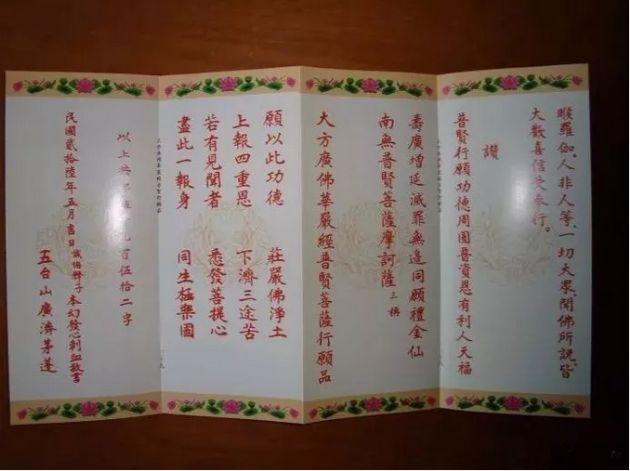 睺羅伽。人非人等。一切大眾。聞佛所說。皆
大歡喜信受奉行。
讚
普賢行願功德周圓普資恩有利人天福
壽廣增延滅罪無邊同願禮金仙
南無普賢菩薩摩訶薩 三稱
大方廣佛華嚴經普賢菩薩行願品
願以此功德 莊嚴佛淨土
上報四重恩 下濟三途苦
若有見聞者 悉發菩提心
盡此一報身 同生極樂國
以上共 百伍拾二字
民國貳拾陸年五月吉日 本幻發心刺血敬書
五台山廣濟茅蓬